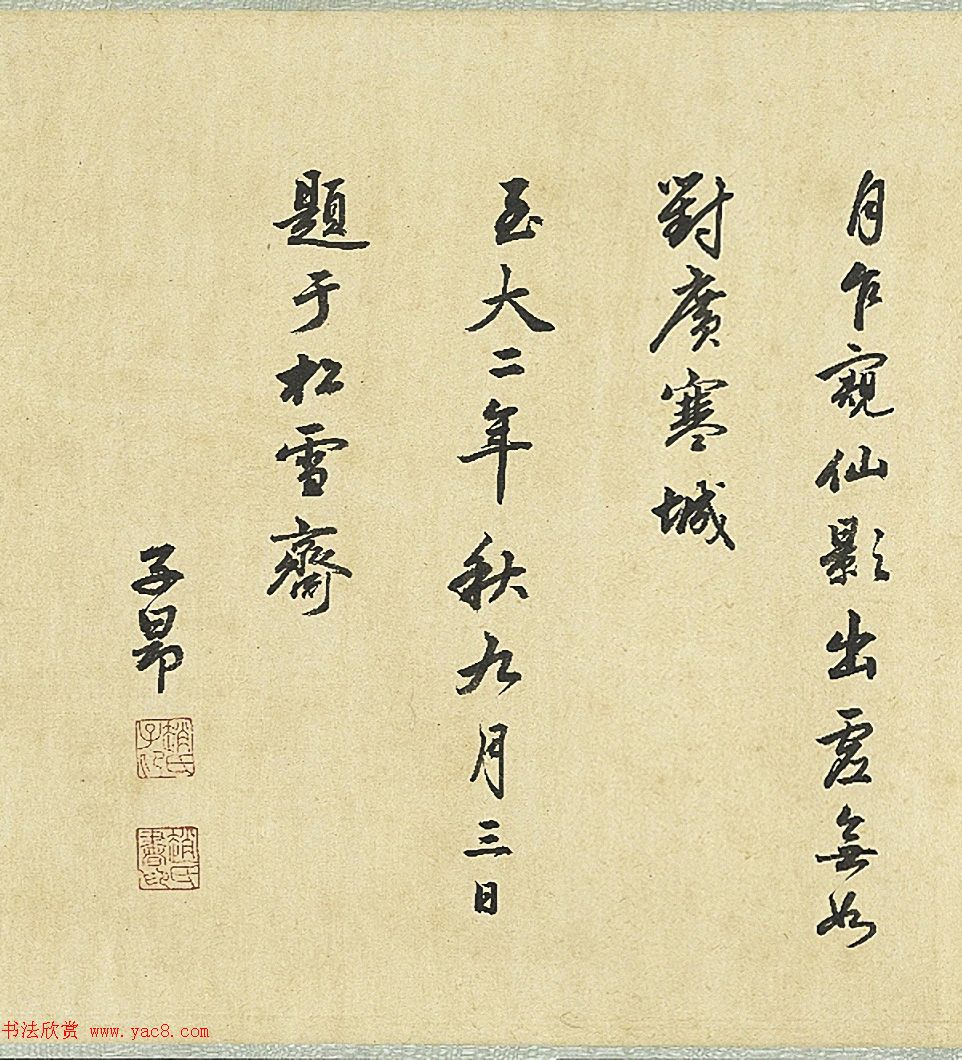 月乍窺仙影出虛無如
對廣寒城
至大二年秋九月三日
題于松雪齋
子昂
趙氏子印
趙氏書印
书法欣赏 www.yac8.com